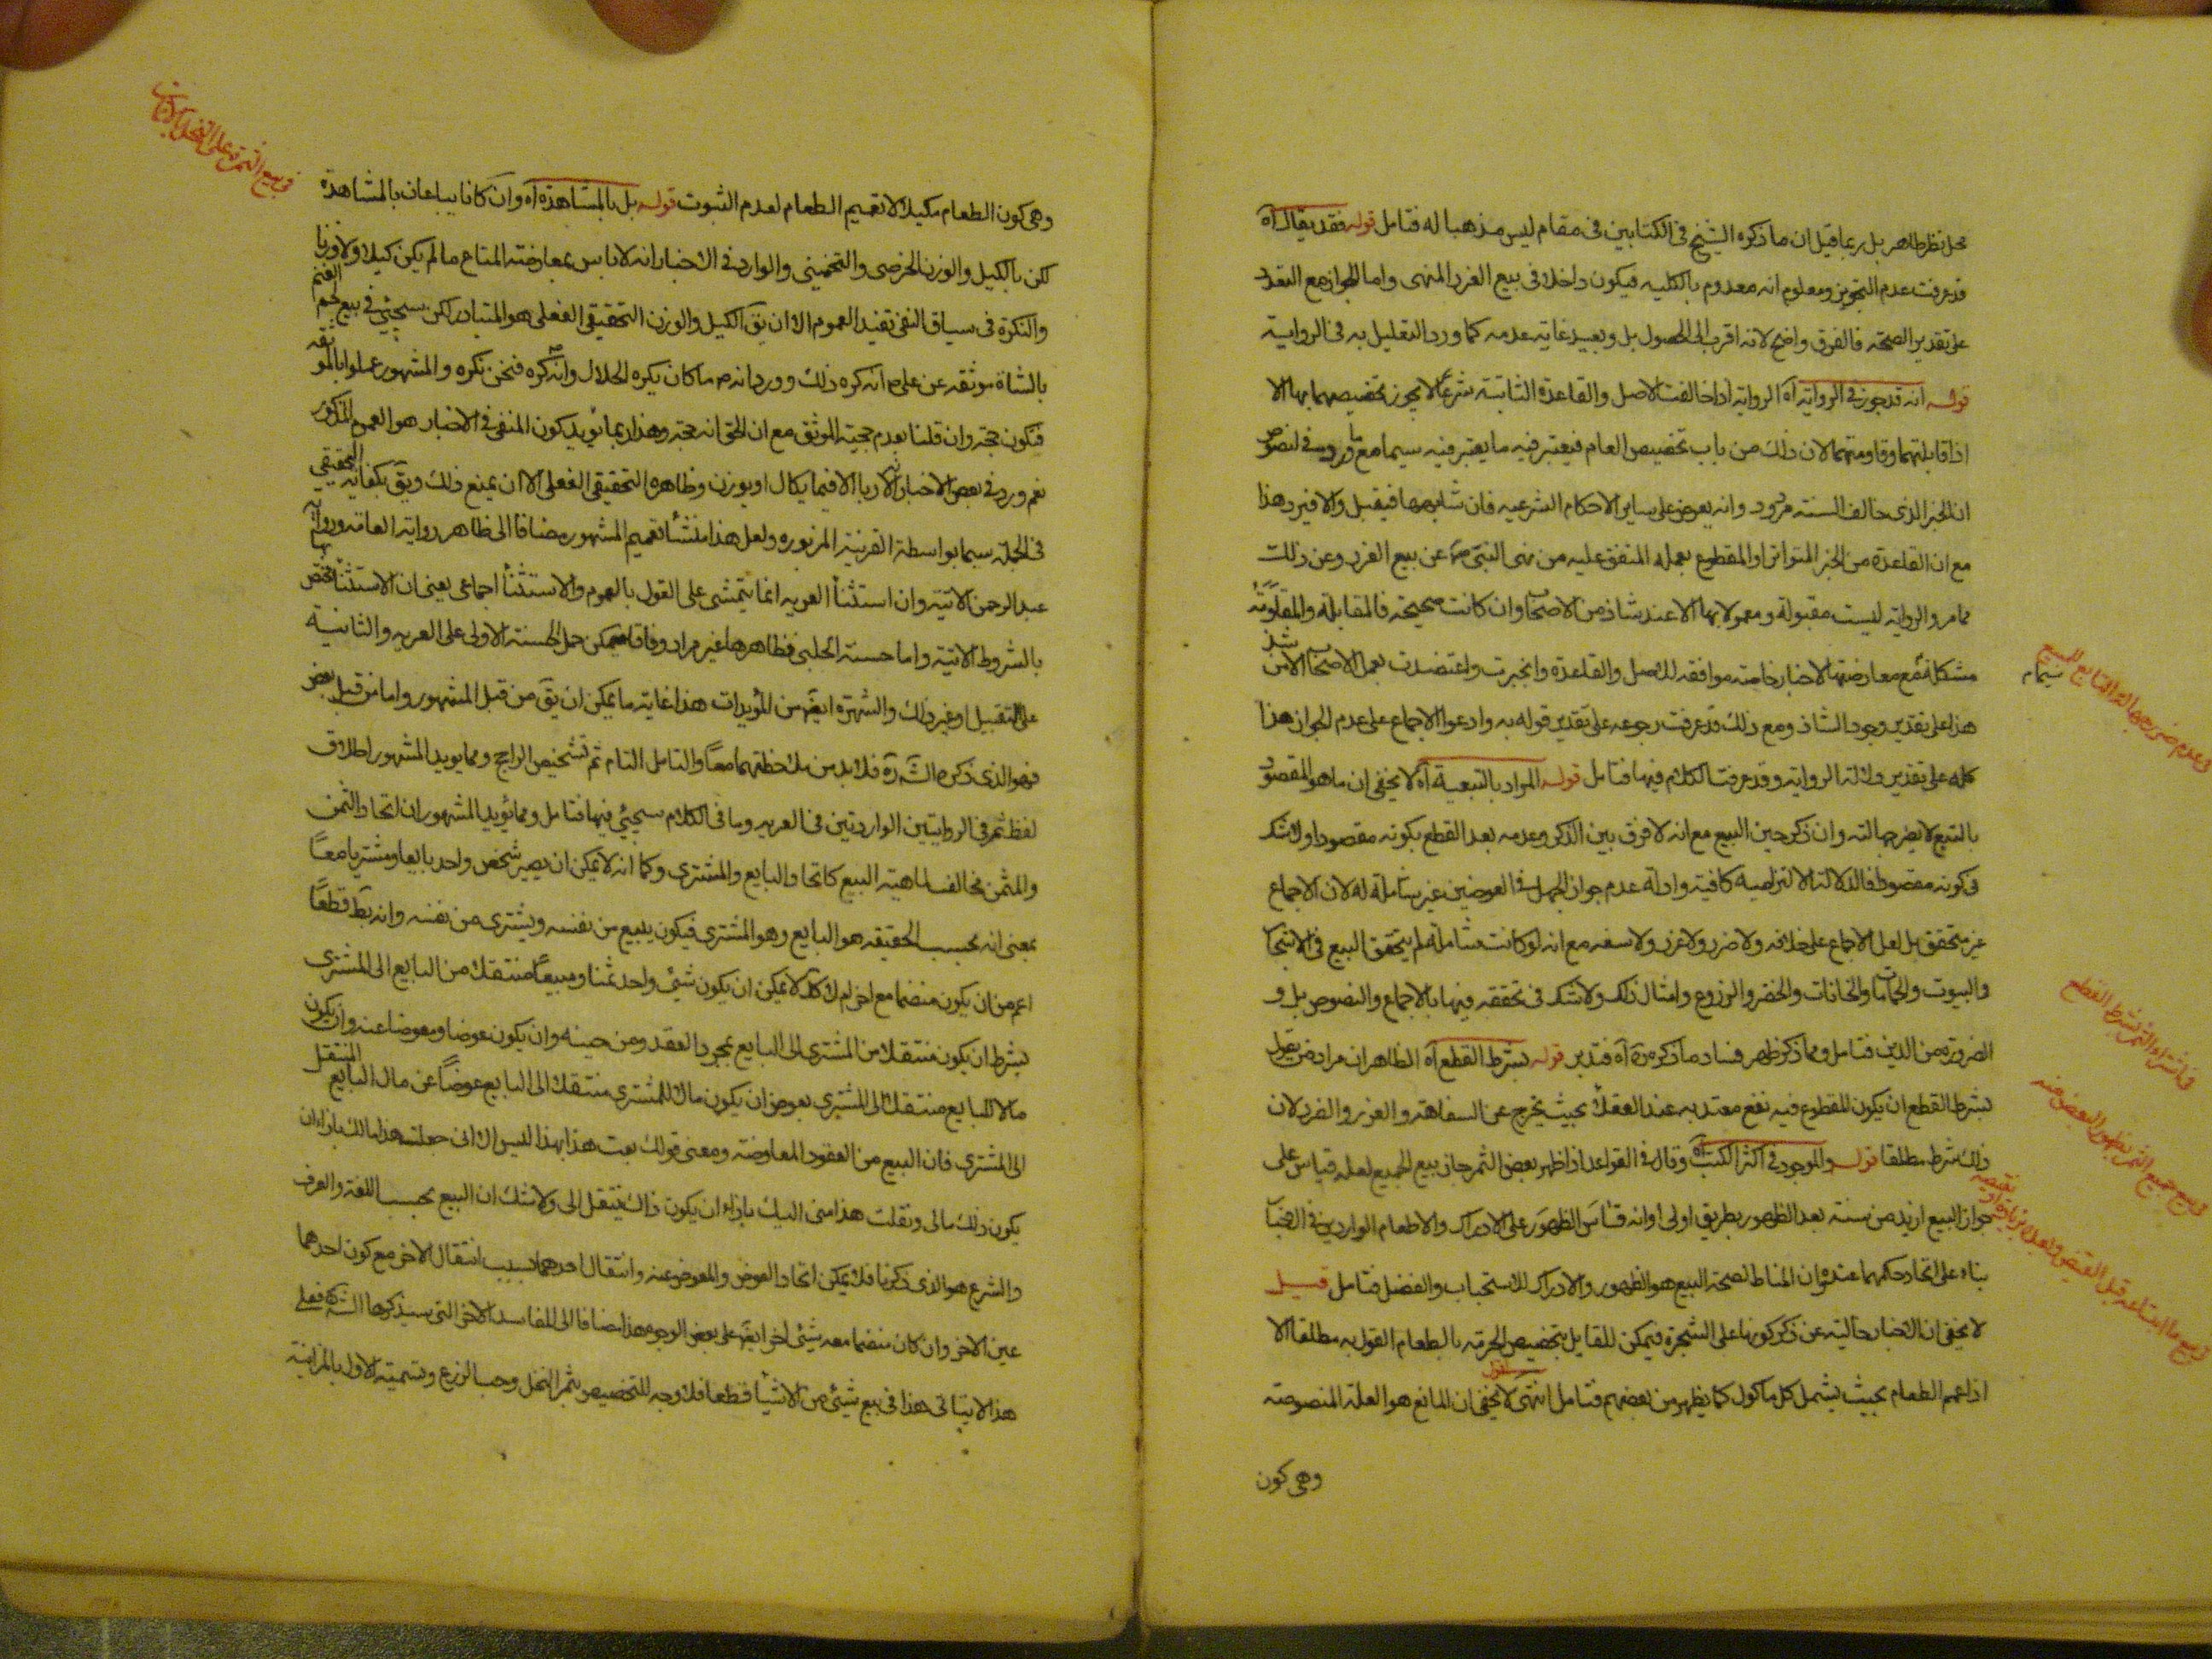 محل نظر ظاهر بل ربما قيل ان ما ذكره الشيخ فى الكتابين فى مقام ليس مذهبا له فتامل قوله فقد يقال آه
قد عرفت عدم التجويز ومعلوم انه معدوم بالكليه فيكون داخلا فى بيع الغرر المنهى واما الجواز مع التعدد
على تقدير الصحه فالفرق واضح لانه اقرب الى الحصول بل وبعيد غايته عدمه كما ورد التعليل به فى الرواية
قوله انه قد جوز فى الرواية آه الرواية اذا خالفت الاصل والقاعدة الثابتة شرعا لا يجوز تخصيصهما بها الا
اذا قابلتهما وقاومتهما لان ذلك من باب تخصيص العام فيعتبر فيه ما يعتبر فيه سيما مع ما ورد فى النصوص
ان الخبر الذى خالف السنه مردود وانه يعرض على ساير الاحكام الشرعيه فان شابهها فيقبل والا فيرد هذا
مع ان القاعدة من الخبر المتواتر او المقطوع بعمله المتفق عليه من نهى النبى ص عن بيع الغرر وعن ذلك
مما مر والرواية ليست مقبولة ومعمولا بها الا عند شاذ من الاصحاب وان كانت صحيحة فالمقابلة والمقاومة
مشكلة مع معارضتها لاخبار خاصة موافقه للاصل والقاعدة وانجبرت واعتضدت بعمل الاصحاب الا من شذ
هذا على تقدير وجود الشاذ ومع ذلك قد عرفت رجوعه على تقدير قوله به وادعوا الاجماع على عدم الجواز هذا
كله على تقدير دلالة الرواية وقد عرفت الكلام فيها فتامل قوله المراد بالتبعية آه لا يخفى ان ما هو المقصود
بالتبع لا يضر جهالته وان ذكر حين البيع مع انه لا فرق بين الذكر وعدمه بعد القطع بكونه مقصودا ولا شك
فى كونه مقصودا فالدلالة الالتزاميه كافية وادلة عدم جواز الجهل فى العوضين غير شاملة له لان الاجماع
غير متحقق بل لعل الاجماع على خلافه ولا ضرر ولا غرر ولا سفه مع انه لو كانت شاملة لم يتحقق البيع فى الاشجار
والبيوت والحمامات والخانات والخضر والزروع وامثال ذلك ولا شك فى تحققه فيها بالاجماع والنصوص بل و
الضرورة من الدين فتامل ومما ذكر ظهر فساد ما ذكره من آه فتدبر قوله بشرط القطع آه الظاهر ان مراد من يقول
بشرط القطع ان يكون للمقطوع فيه نفع معتد به عند العقلاء بحيث يخرج عن السفاهة والغرر والضرر لان
ذلك شرط مطلقا قوله والموجود فى اكثر الكتب آه وقال فى القواعد اذا ظهر بعض الثمر جاز بيع الجميع لعله قياس على
جواز البيع ازيد من سنة بعد الظهور بطريق اولى او انه قاس الظهور على الادراك والاطعام الواردين فى الاخبار
بناء على اتحاد حكمهما عنده وان المناط لصحة البيع هو الظهور والادراك للاستحباب والفضل فتامل قيل
لا يخفى ان الاخبار خالية عن ذكر كونها على الشجرة فيمكن للقايل بتخصيص الحرمة بالطعام القول به مطلقا الا
اذا عمم الطعام بحيث يشمل كل ماكول كما يظهر من بعضهم فتامل انتهى لا يخفى ان المانع هو العلة المنصوصة
وهى كون
وعدم ضرر جهالة التابع للمبيع
فى اشتراء الثمر بشرط القطع
فى بيع جميع الثمر بظهور البعض منه
وهى كون الطعام مكيلا لا تعميم الطعام لعدم الثبوت قوله بل بالمشاهدة آه وان كانا يباعان بالمشاهدة
لكن بالكيل والوزن الخرصى والتخمينى والوارد فى الاخبار انه لا باس بمعاوضة المتاع ما لم يكن كيلا ولا وزنا
والنكرة فى سياق النفى تفيد العموم الا ان يق الكيل والوزن التحقيقى الفعلى هو المتبادر لكن سيجئ فى بيع لحم الغنم
بالشاة موثقه عن على ص انه كره ذلك وورد انه ص ما كان يكره الحلال وانه كره فنحن نكره والمشهور عملوا بالموثقه
فتكون حجة وان قلنا بعدم حجية الموثق مع ان الحق انه حجة وهذا ربما يؤيد كون المنفى فى الاخبار هو العموم المذكور
نعم ورد فى بعض الاخبار لا ربا الا فيما يكال او يوزن وظاهره التحقيقى الفعلى الا ان يمنع ذلك ويق بكفاية التحقيقى
فى الجملة سيما بواسطة القرينة المزبوره ولعل هذا منشأ تعميم المشهور مضافا الى ظاهر رواية العامه ورواية
عبد الرحمن الاتية وان استثنأ العريه انما يتمشى على القول بالعموم والاستثنأ اجماعى يعنى ان الاستثنأ مختص بها
بالشروط الاتية واما حسنة الحلبى فظاهرها غير مراد وفاقا فيمكن حمل الحسنة الاولى على العريه والثانية
على التقبيل او غير ذلك والشهرة ايضا من المؤيدات هذا غاية ما يمكن ان يق من قبل المشهور واما من قبل بعض
فهو الذى ذكره الشره فلا بد من ملاحظتهما معا والتامل التام ثم تشخيص الراجح ومما يويد المشهور اطلاق
لفظ ثمر فى الروايتين الواردتين فى العريه وما فى الكلام سيجئ فيها فتامل ومما يؤيد المشهور ان اتحاد الثمن
والمثمن مخالف لماهية البيع كاتحاد البايع والمشترى وكما انه لا يمكن ان يصير شخص واحد بايعا ومشتريا معا
بمعنى انه بحسب الحقيقه هو البايع وهو المشترى فيكون يبيع من نفسه ويشترى من نفسه وانه بط قطعا
اعم من ان يكون منضما مع اخر ام لا كك لا يمكن ان يكون شئ واحد ثمنا ومبيعا منتقلا من البايع الى المشترى
بشرط ان يكون منتقلا من المشترى الى البايع بمجرد العقد ومن حينه وان يكون عوضا ومعوضا عنه وان يكون
مالا للبايع منتقلا الى المشترى بعوض ان يكون مالا للمشترى منتقلا الى البايع عوضا عن مال البايع المنتقل
الى المشترى فان البيع من العقود المعاوضة ومعنى قولك بعت هذا بهذا ليس الا انى جعلت هذا مالك بازاء ان
يكون ذلك مالى ونقلت هذا منى اليك بازاء ان يكون ذاك ينتقل الى ولا شك ان البيع بحسب اللغة والعرف
والشرع هو الذى ذكرنا فلا يمكن اتحاد العوض والمعوض عنه وانتقال احدهما بسبب انتقال الاخر مع كون احدهما
عين الاخر وان كان منضما معه شئ اخر ايضا على بعض الوجوه هذا مضافا الى المفاسد الاخر التى سيذكرها الشره فعلى
هذا لا يتاتى هذا فى بيع شئ من الاشيأ قطعا فلا وجه للتخصيص بثمر النخل وحب الزرع وتسمية الاول بالمزابنة